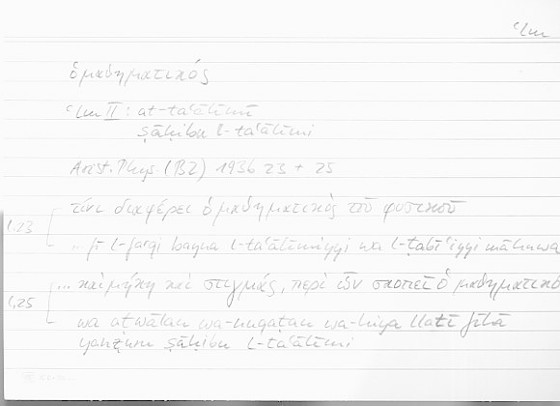 ʿlm
ὁ μαθηματικός
ʿlm II: at-taʿālīmī
ṣāḥibu l-taʿālīmi
Arist. Phys. (B2) 193b 23 + 25
l.23 τίνι διαφέρει ὁ μαθηματικὸς τοῦ φυσικοῦ
.. fī l-farqi bayna l-taʿālīmīyi wa l-ṭabīʿīyi mā huwa
l.25 ... καὶ μήκη καὶ στιγμάς, περὶ ὧν σκοπεῖ ὁ μαθηματικό
wa aṭwālan wa-nuqaṭan wa-hiya llatī fīhā
yanẓuru ṣāḥibu l-taʿālīmi